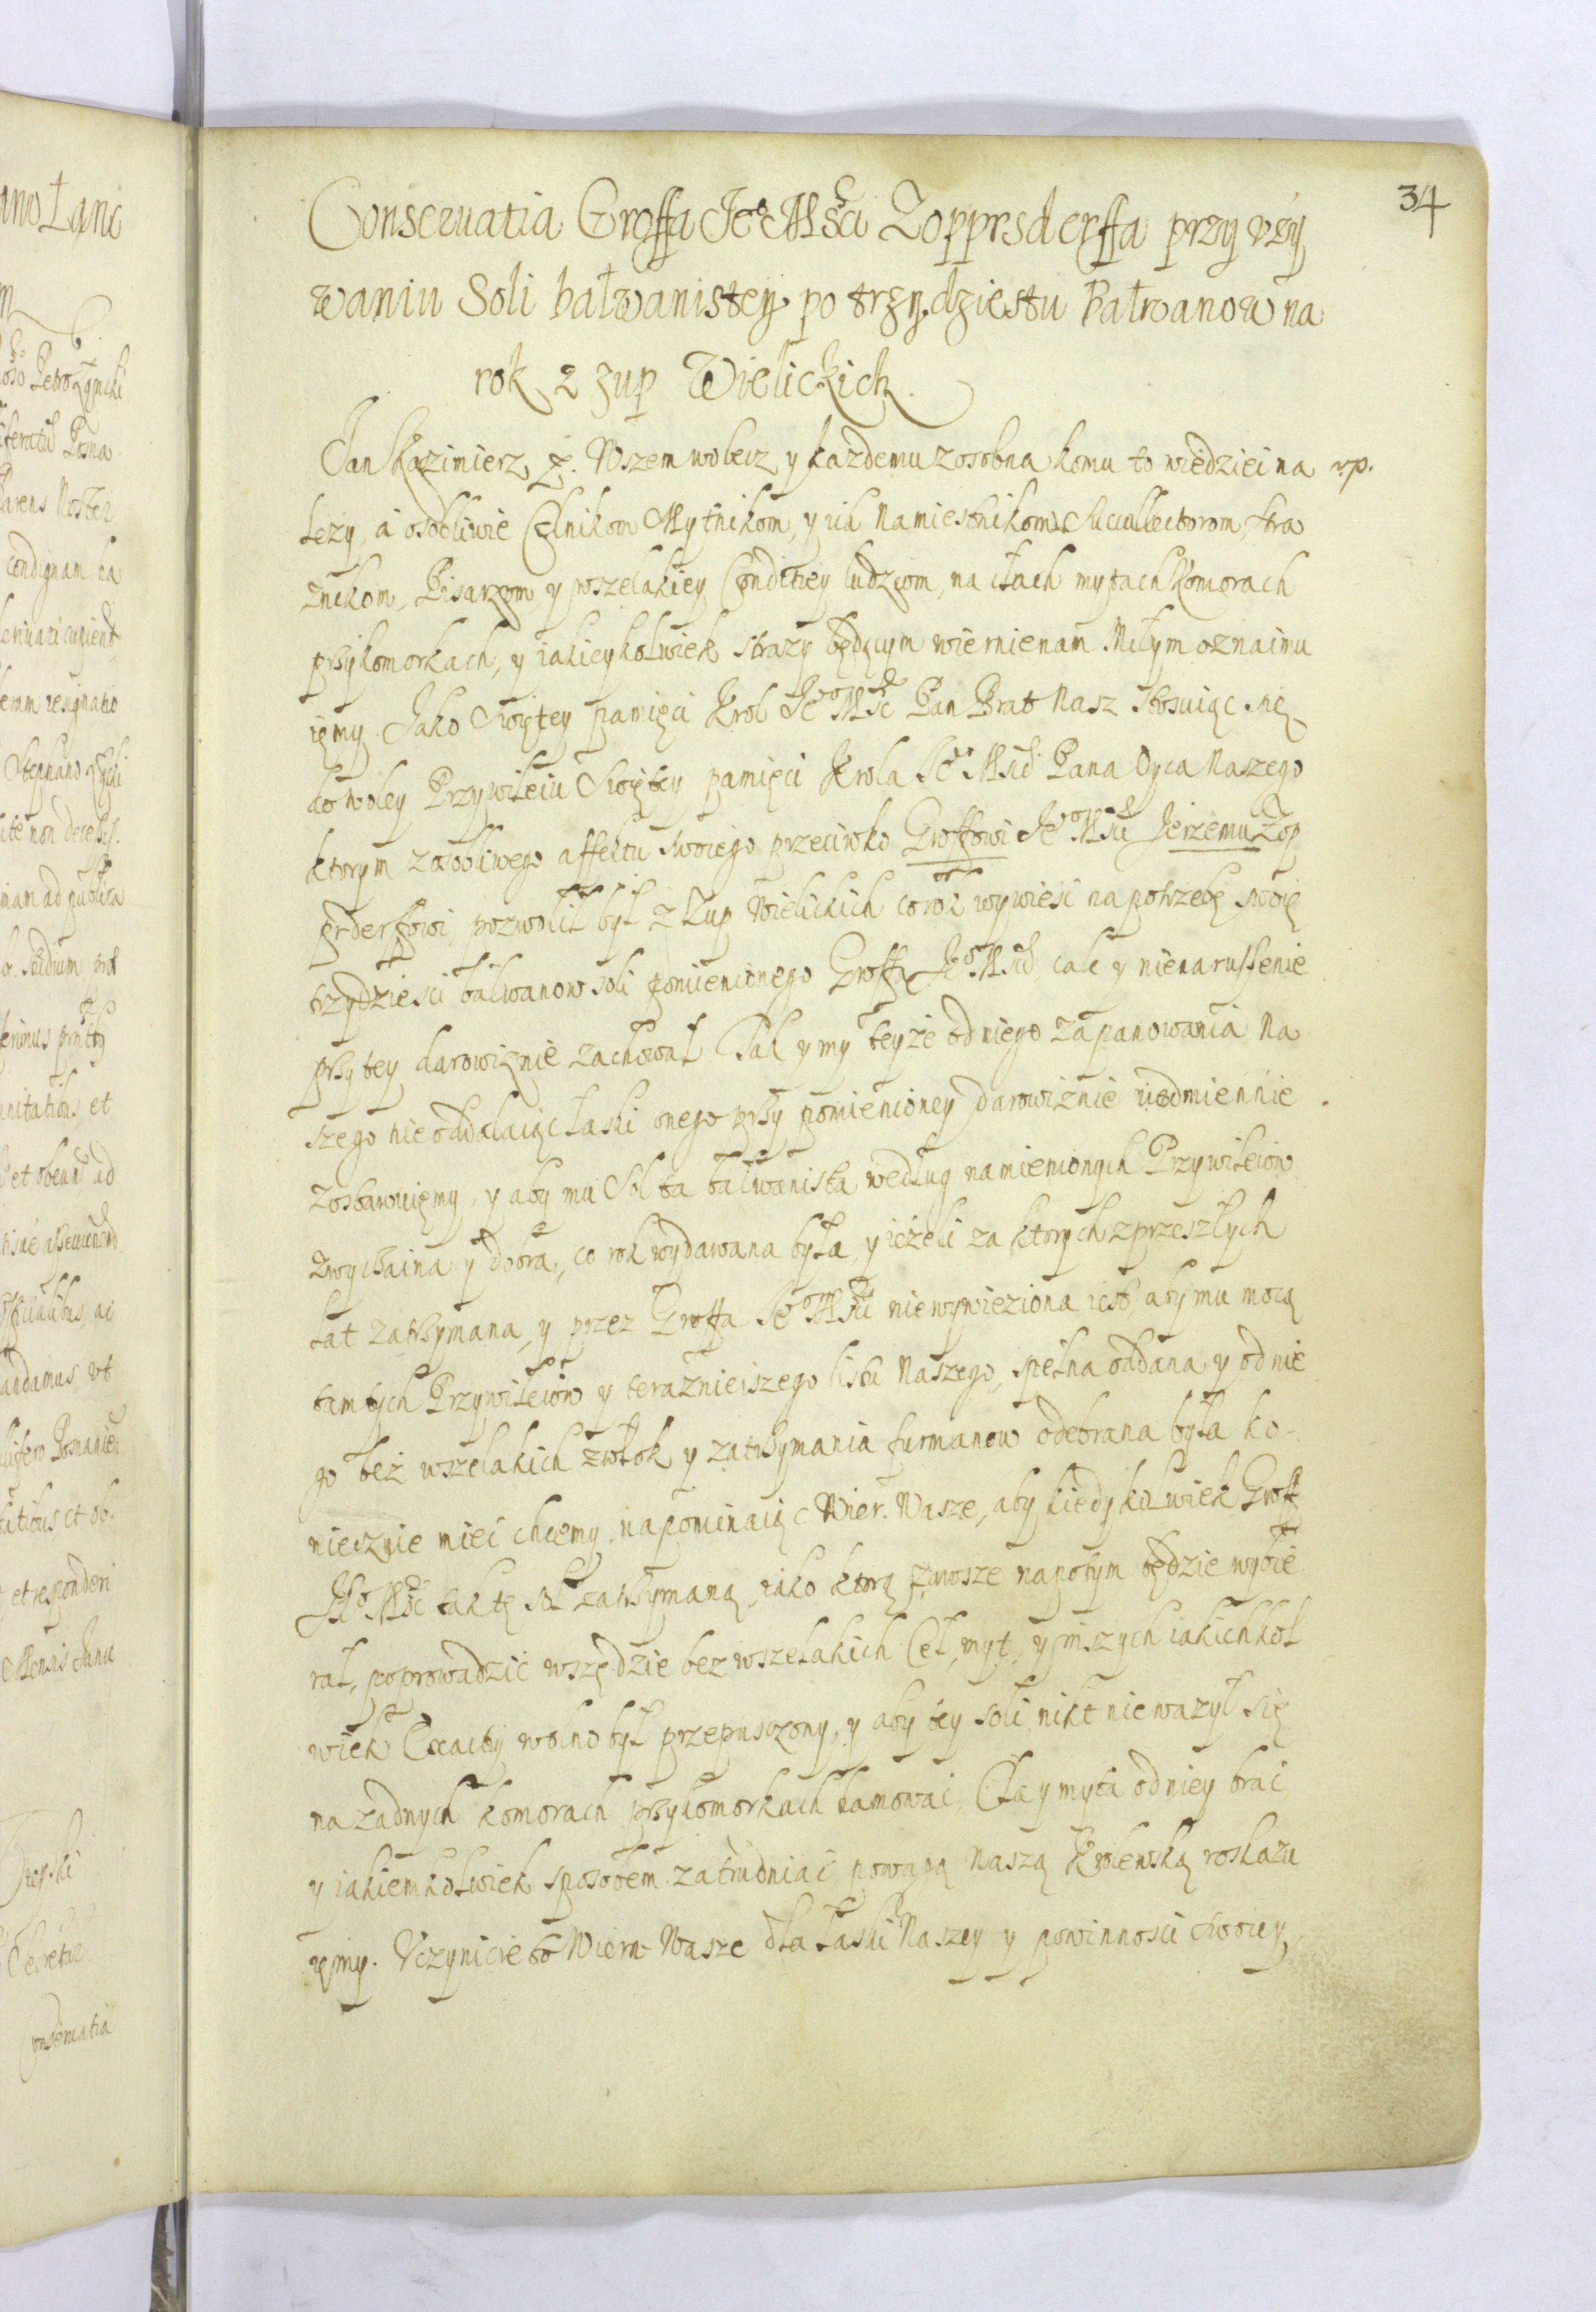 34
Conseruatia Groffa Je° Mści Zopprsderffa przy vży
waniu Soli bałwanistey po trzydziestu Bałwanow na
rok z zup Wielickich.
Jan Kazimierz. Wszem wobecz y każdemu zosobna komu to wiedziec na vp.
leży, a osobliwie Celnikom Mytnikom, y ich Namiestnikom Succullectorom, stra
żnikom, Pisarzom, y wszelakiey Conditiey ludziom, na cłach mytach Komorach
przykomorkach, y iakieykolwiek straży będącym wiernie nam Miłym oznaimu
iemy. Jako Swiętey pamięci Krol Je° Mść Pan Brat Nasz stosuiąc się
do woley Przywileiu Swiętey pamięci Krola Je° Mści Pana Oyca Naszego
ktorym z osobliwego affektu swoiego przeciwko Groffowi Je° Mści Jerzemu Zop
prderffowi, pozwolił był z Zup Wielickich co rok wywieść na potrzebę swoię
trzydzieści bałwanow soli pomienionego Groffa Je° Mści, cale y nienarussenie
przy tey darowiznie zachował Tak y my teyże od niego za panowania Na
szego nie oddalaiąc łaski onego przy pomienioney Darowiznie nieodmiennie
zostawuiemy, y aby mu Sol ta bałwanista według namienionych Przywileiow
zwyczaina y dobra, co rok wydawana była, y ieżeli za ktorych zprzeszłych
lat zatrzymana, y przez Groffa Je° Mści niewywieziona iest, aby mu mocą
tamtych Przywileiow y teraznieiszego listu Naszego, spełna oddana y od nie
go bez wszelakich zwłok y zatrzymania furmanow odebrana była ko-
niecznie mieć chcemy, napominaiąc Wier. Wasze, aby kiedykolwiek Groff
Je° Mść tak tę sol zatrzymaną, iako ktorą zawsze napotym będzie wybie
rał, poprowadzić wszędzie bez wszelakich Ceł, myt, y inszych iakichkol
wiek Exactiy wolno był przepusczony, y aby tey soli nikt nieważył się
na żadnych komorach przykomorkach hamować, Cła y myta od niey brać
y iakiemkolwiek sposobem zatrudniać, powagą Naszą Krolewską roskazu
iemy. Vczynicie to Wiern. Wasze dla łaski Naszey y powinnosci swoiey,